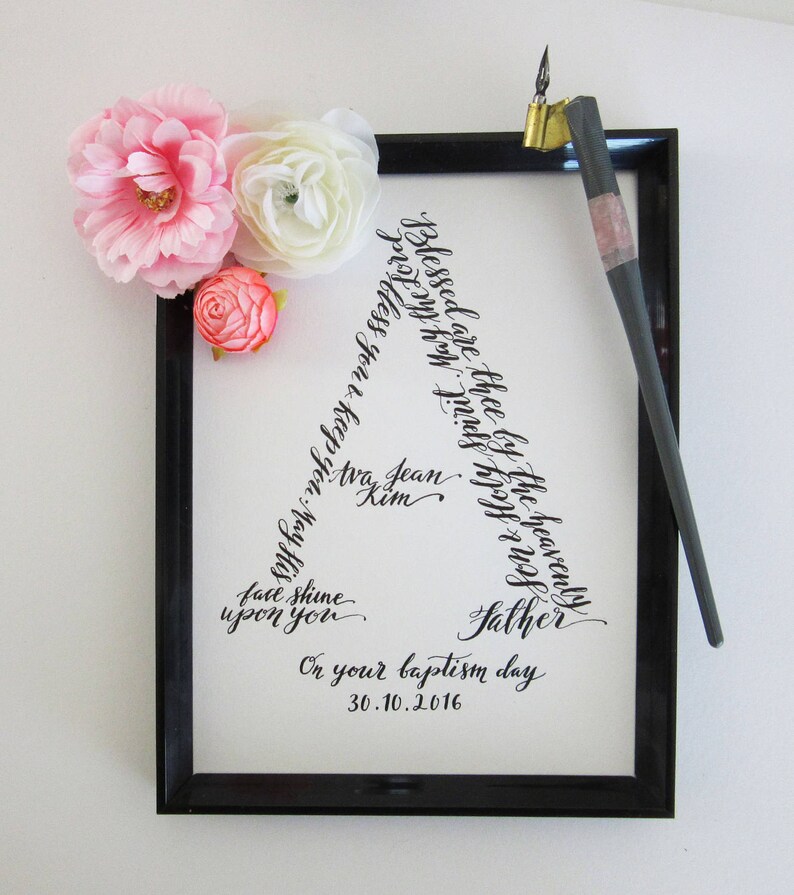 Blessed are thee by the heavenly
Father
Son & Holy Spirit. May the Lord
bless you & keep you. May His
face shine
upon you
Ava Jean
Kim
On your baptism day
30.10.2016